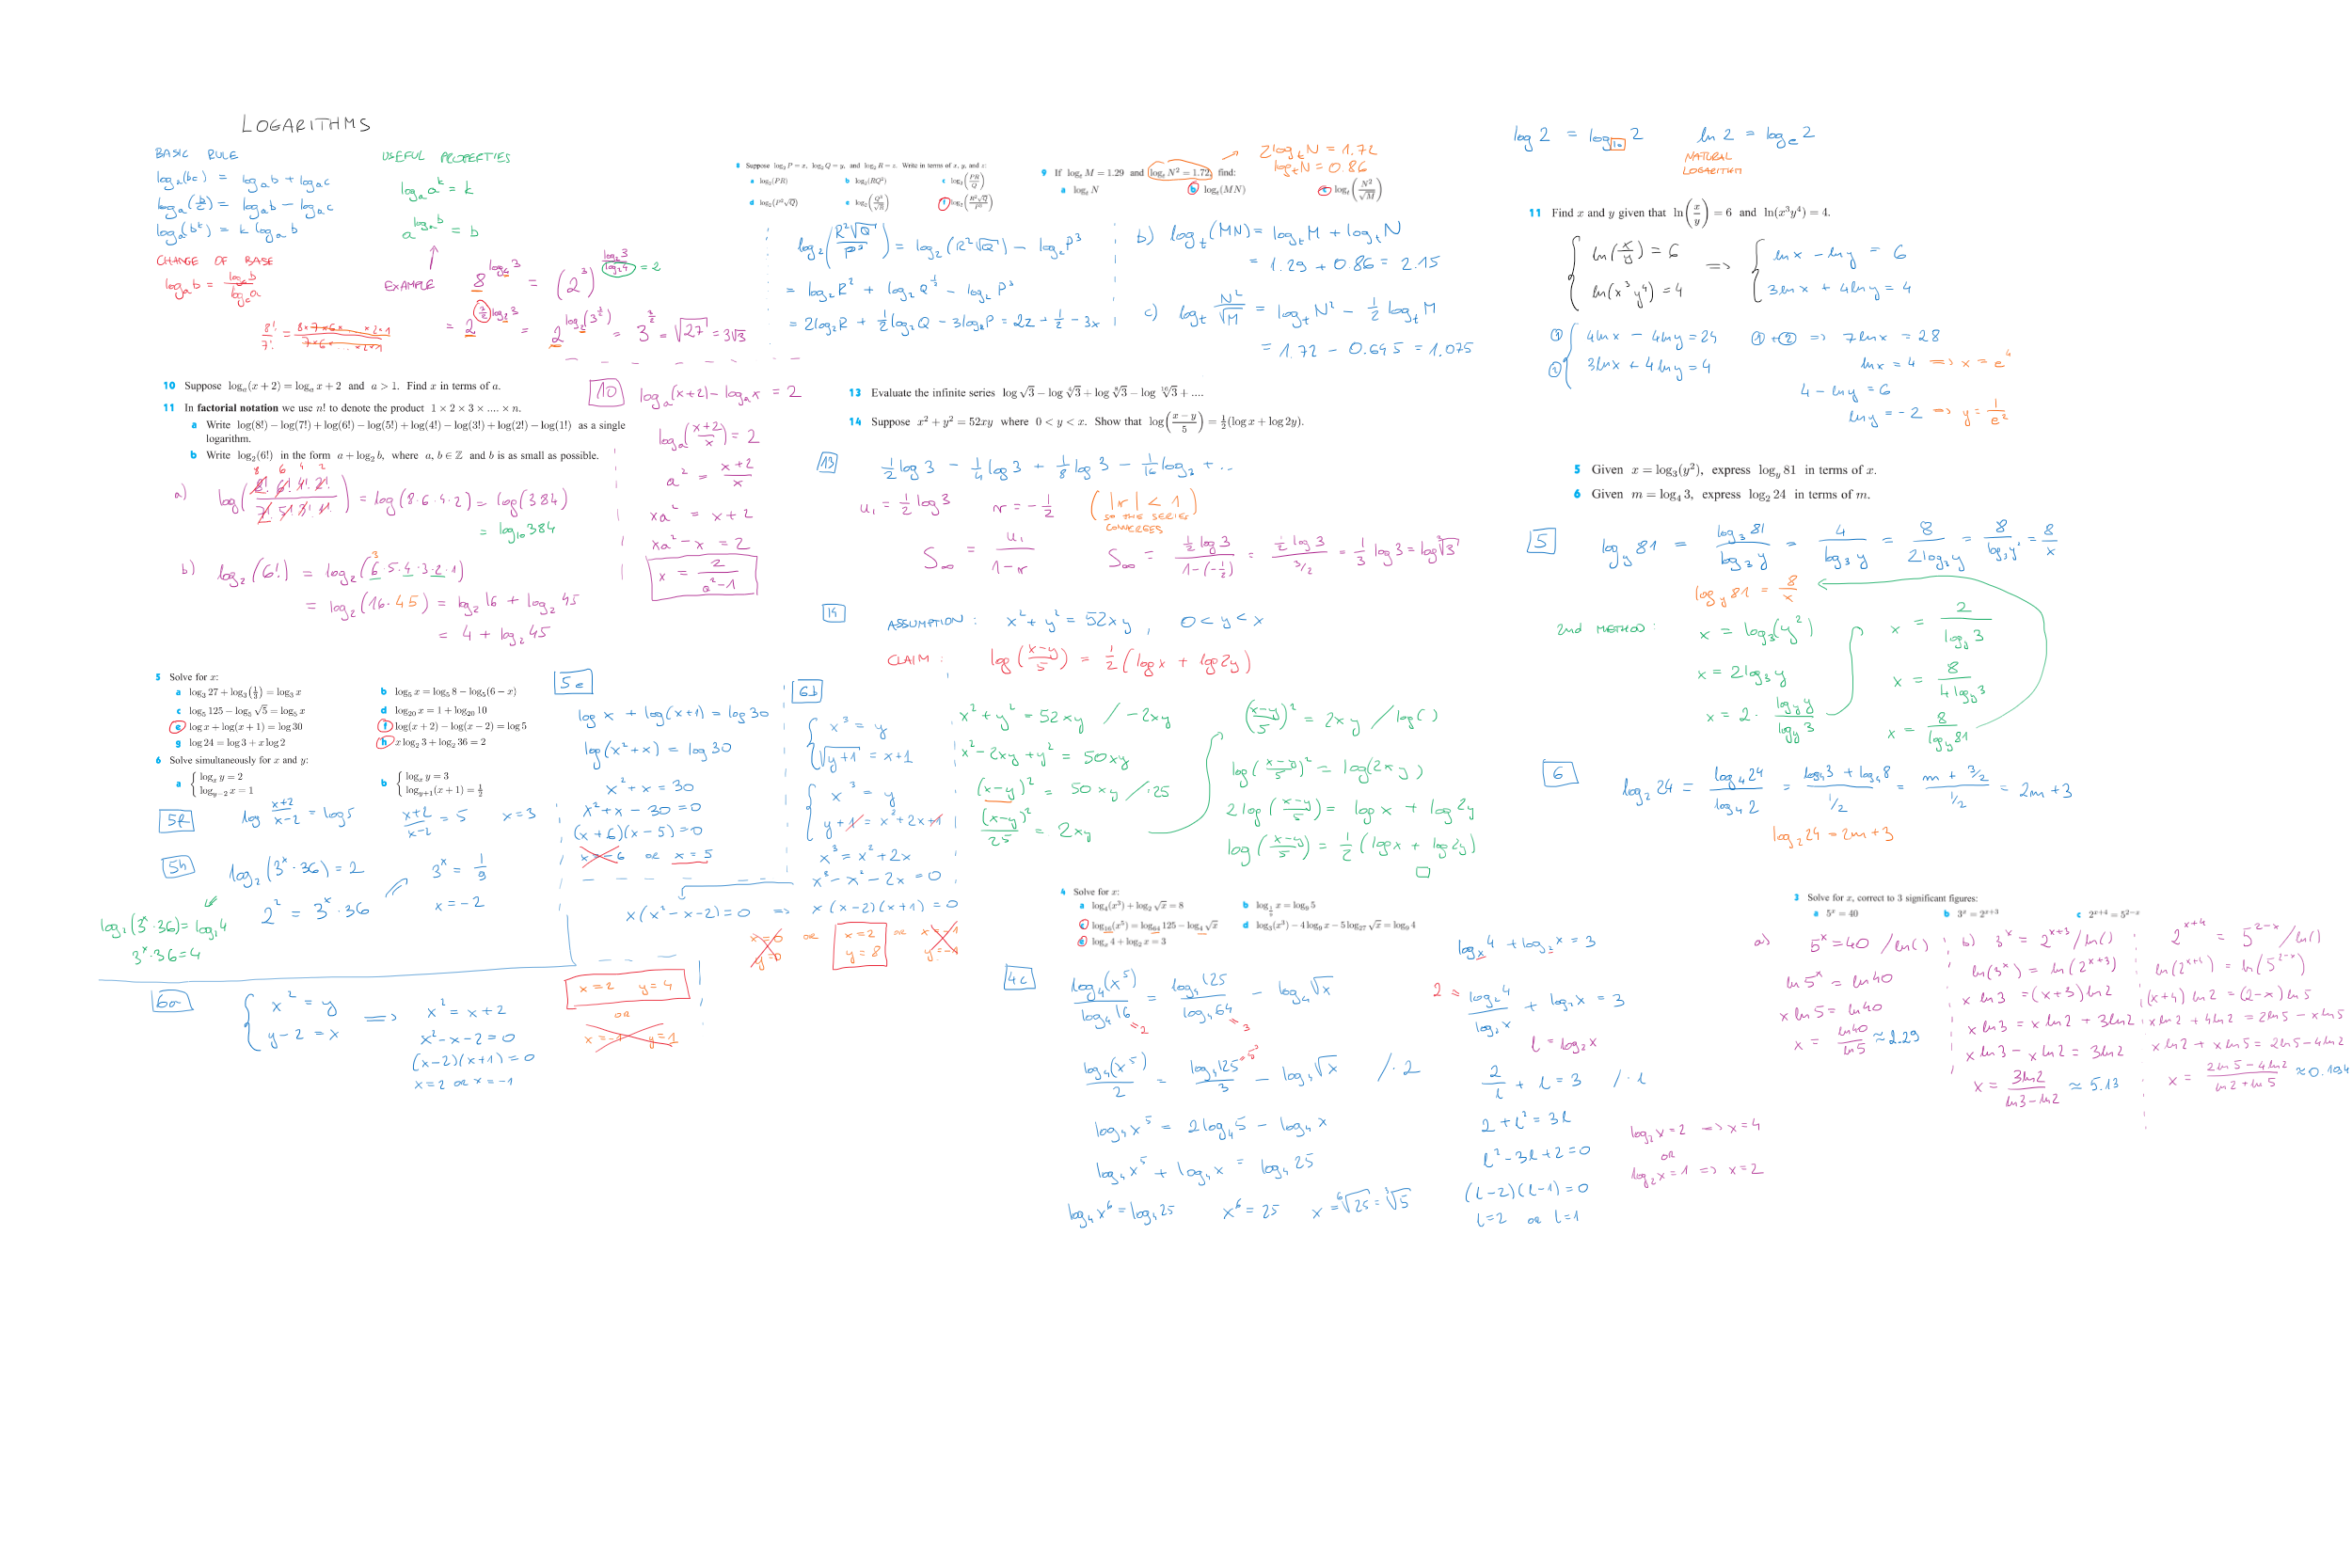 LOGARITHMS
BASIC RULE
log_a(bc) = log_a b + log_a c
log_a(b/c) = log_a b − log_a c
log_a(b^k) = k log_a b
CHANGE OF BASE
log_a b = log_c b / log_c a
USEFUL PROPERTIES
log_a a^k = k
a^(log_a b) = b
EXAMPLE
8^(log_4 3) = (2^3)^(log_2 3 / log_2 4) = 2
= 2^(3/2 log_2 3) = 2^(log_2(3^(3/2))) = 3^(3/2) = √27 = 3√3
8!/7! = 8×7×6×...×2×1 / 7×6×...×2×1
8 Suppose log_2 P = x, log_2 Q = y, and log_2 R = z. Write in terms of x, y, and z:
a log_2(PR) b log_2(RQ^2) c log_2(PR/Q)
d log_2(P^2√Q) e log_2(Q^3/√R) f log_2(R^2√Q/P^3)
log_2(R^2√Q/P^3) = log_2(R^2√Q) − log_2 P^3
= log_2 R^2 + log_2 Q^(1/2) − log_2 P^3
= 2log_2 R + 1/2 log_2 Q − 3log_2 P = 2z + 1/2 − 3x
9 If log_t M = 1.29 and log_t N^2 = 1.72, find:
a log_t N b log_t(MN) c log_t(N^2/√M)
2log_t N = 1.72
log_t N = 0.86
b) log_t(MN) = log_t M + log_t N
= 1.29 + 0.86 = 2.15
c) log_t N^2/√M = log_t N^2 − 1/2 log_t M
= 1.72 − 0.645 = 1.075
log 2 = log_10 2 ln 2 = log_e 2
NATURAL
LOGARITHM
11 Find x and y given that ln(x/y) = 6 and ln(x^3y^4) = 4.
{ ln(x/y) = 6 => { ln x − ln y = 6
ln(x^3 y^4) = 4 3 ln x + 4 ln y = 4
① { 4 ln x − 4 ln y = 24 ① + ② => 7 ln x = 28
② 3 ln x + 4 ln y = 4 ln x = 4 => x = e^4
4 − ln y = 6
ln y = −2 => y = 1/e^2
10 Suppose log_a(x + 2) = log_a x + 2 and a > 1. Find x in terms of a.
11 In factorial notation we use n! to denote the product 1 × 2 × 3 × .... × n.
a Write log(8!) − log(7!) + log(6!) − log(5!) + log(4!) − log(3!) + log(2!) − log(1!) as a single
logarithm.
b Write log_2(6!) in the form a + log_2 b, where a, b ∈ ℤ and b is as small as possible.
8 6 4 2
a) log(8! 6! 4! 2! / 7! 5! 3! 1!) = log(8·6·4·2) = log(384)
= log_10 384
b) log_2(6!) = log_2(6·5·4·3·2·1)
3
= log_2(16·45) = log_2 16 + log_2 45
= 4 + log_2 45
10 log_a(x+2) − log_a x = 2
log_a(x+2/x) = 2
a^2 = x+2/x
xa^2 = x+2
xa^2 − x = 2
x = 2/a^2−1
13 Evaluate the infinite series log √3 − log ⁴√3 + log ⁸√3 − log ¹⁶√3 + ....
14 Suppose x^2 + y^2 = 52xy where 0 < y < x. Show that log(x − y/5) = 1/2(log x + log 2y).
13 1/2 log 3 − 1/4 log 3 + 1/8 log 3 − 1/16 log 3 + ...
u_1 = 1/2 log 3 r = −1/2 ( |r| < 1
SO THE SERIES
CONVERGES )
S_∞ = u_1/1−r S_∞ = 1/2 log 3 / 1−(−1/2) = 1/2 log 3 / 3/2 = 1/3 log 3 = log ³√3
14 ASSUMPTION: x^2 + y^2 = 52xy, 0 < y < x
CLAIM: log(x−y/5) = 1/2(log x + log 2y)
x^2 + y^2 = 52xy / −2xy
x^2 − 2xy + y^2 = 50xy
(x−y)^2 = 50xy / :25
(x−y)^2/25 = 2xy
(x−y/5)^2 = 2xy / log( )
log(x−y/5)^2 = log(2xy)
2 log(x−y/5) = log x + log 2y
log(x−y/5) = 1/2(log x + log 2y)
5 Given x = log_3(y^2), express log_y 81 in terms of x.
6 Given m = log_4 3, express log_2 24 in terms of m.
5 log_y 81 = log_3 81/log_3 y = 4/log_3 y = 8/2log_3 y = 8/log_3 y^2 = 8/x
log_y 81 = 8/x
2nd METHOD: x = log_3(y^2)
x = 2log_3 y
x = 2 · log_y y/log_y 3
x = 2/log_y 3
x = 8/4log_y 3
x = 8/log_y 81
6 log_2 24 = log_4 24/log_4 2 = log_4 3 + log_4 8 / 1/2 = m + 3/2 / 1/2 = 2m + 3
log_2 24 = 2m + 3
5 Solve for x:
a log_3 27 + log_3(1/3) = log_3 x b log_5 x = log_5 8 − log_5(6 − x)
c log_5 125 − log_5 √5 = log_5 x d log_20 x = 1 + log_20 10
e log x + log(x + 1) = log 30 f log(x + 2) − log(x − 2) = log 5
g log 24 = log 3 + x log 2 h x log_2 3 + log_2 36 = 2
6 Solve simultaneously for x and y:
a { log_x y = 2 b { log_x y = 3
log_(y−2) x = 1 log_(y+1)(x + 1) = 1/2
5f log x+2/x−2 = log 5 x+2/x−2 = 5 x = 3
5h log_2(3^x·36) = 2 3^x = 1/9
2^2 = 3^x·36 x = −2
log_2(3^x·36) = log_2 4
3^x·36 = 4
5e
log x + log(x+1) = log 30
log(x^2+x) = log 30
x^2 + x = 30
x^2 + x − 30 = 0
(x+6)(x−5) = 0
x = −6 or x = 5
6b
{ x^3 = y
√(y+1) = x+1
{ x^3 = y
y+1 = x^2+2x+1
x^3 = x^2+2x
x^3 − x^2 − 2x = 0
x(x^2−x−2) = 0 => x(x−2)(x+1) = 0
x=0 OR x=2 OR x=−1
y=0 y=8 y=−1
6a { x^2 = y => x^2 = x+2
y−2 = x x^2−x−2 = 0
(x−2)(x+1) = 0
x=2 OR x=−1
x=2 y=4
OR
x=−1 y=1
4 Solve for x:
a log_4(x^3) + log_2 √x = 8 b log_(1/9) x = log_9 5
c log_16(x^5) = log_64 125 − log_4 √x d log_3(x^3) − 4 log_9 x − 5 log_27 √x = log_9 4
e log_x 4 + log_2 x = 3
4c log_4(x^5)/log_4 16 = log_4 125/log_4 64 − log_4 √x
=2 =3
log_4(x^5)/2 = log_4 125/3 − log_4 √x / ·2
=5^3
log_4 x^5 = 2log_4 5 − log_4 x
log_4 x^5 + log_4 x = log_4 25
log_4 x^6 = log_4 25 x^6 = 25 x = ⁶√25 = ³√5
log_x 4 + log_2 x = 3
2 = log_2 4/log_2 x + log_2 x = 3
l = log_2 x
2/l + l = 3 / ·l
2 + l^2 = 3l
l^2 − 3l + 2 = 0
(l−2)(l−1) = 0
l=2 OR l=1
log_2 x = 2 => x = 4
OR
log_2 x = 1 => x = 2
3 Solve for x, correct to 3 significant figures:
a 5^x = 40 b 3^x = 2^(x+3) c 2^(x+4) = 5^(2−x)
a) 5^x = 40 / ln( )
ln 5^x = ln 40
x ln 5 = ln 40
x = ln 40/ln 5 ≈ 2.29
b) 3^x = 2^(x+3) / ln( )
ln(3^x) = ln(2^(x+3))
x ln 3 = (x+3) ln 2
x ln 3 = x ln 2 + 3 ln 2
x ln 3 − x ln 2 = 3 ln 2
x = 3 ln 2/ln 3 − ln 2 ≈ 5.13
2^(x+4) = 5^(2−x) / ln( )
ln(2^(x+4)) = ln(5^(2−x))
(x+4) ln 2 = (2−x) ln 5
x ln 2 + 4 ln 2 = 2 ln 5 − x ln 5
x ln 2 + x ln 5 = 2 ln 5 − 4 ln 2
x = 2 ln 5 − 4 ln 2/ln 2 + ln 5 ≈ 0.194